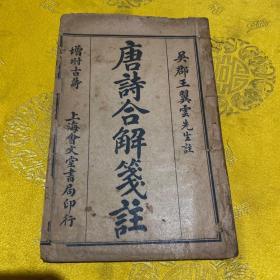 吳郡王翼雲先生註
唐詩合解箋註
增附古詩
上海會文堂書局印行